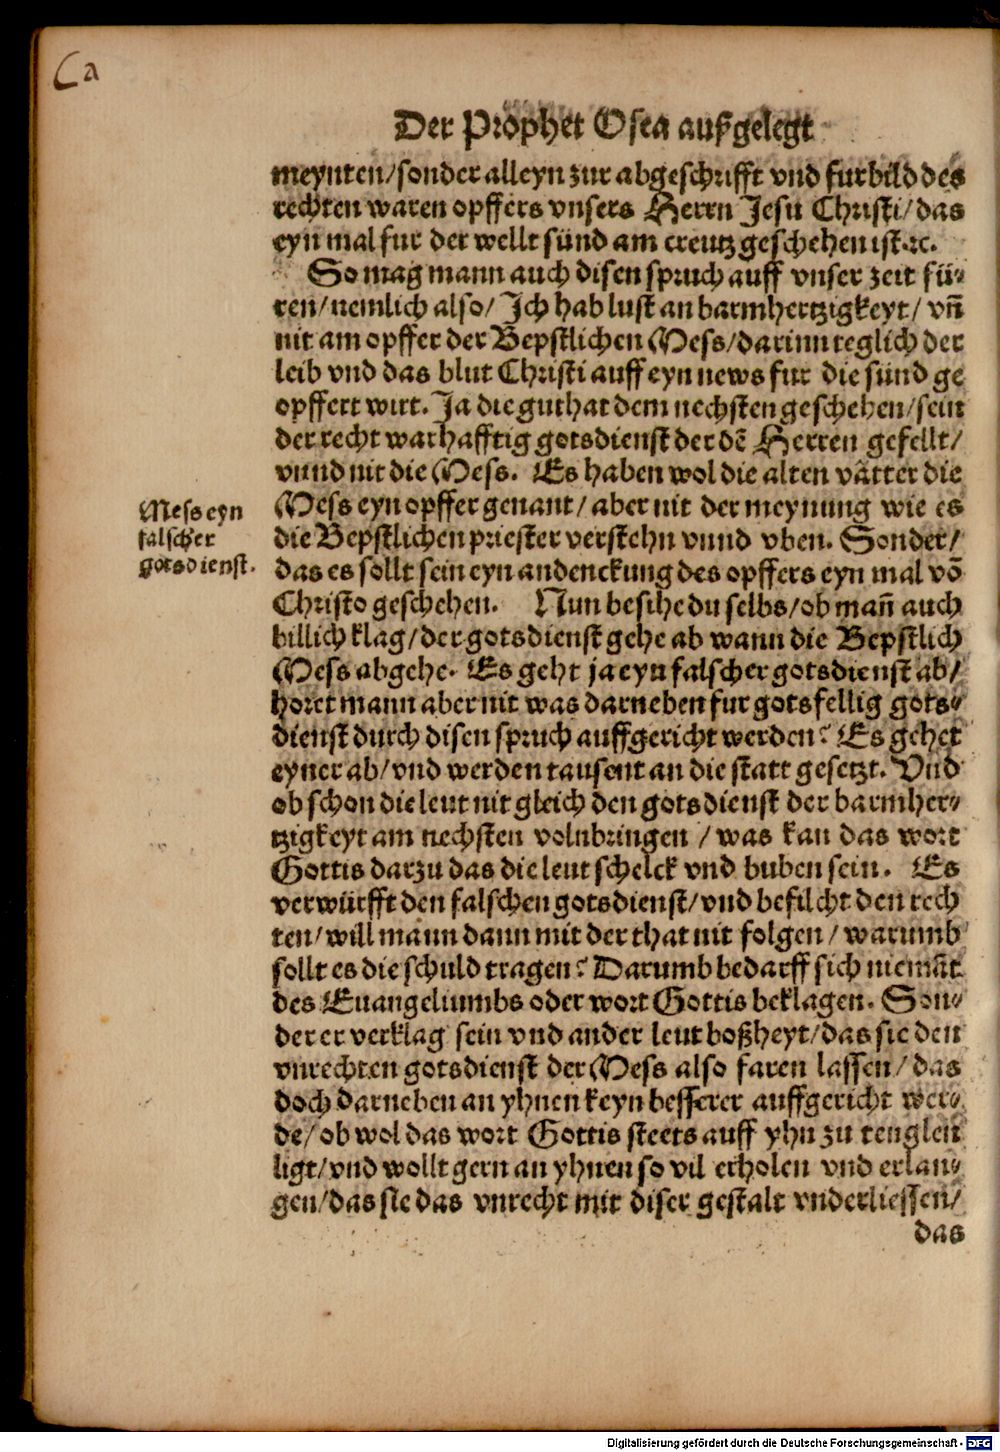 Ca
Der Prophet Osea außgelegt
meynten/sonder alleyn zur abgeschrifft vnd furbild des
rechten waren opffers vnsers Herrn Jesu Christi/das
eyn mal fur der wellt sünd am creutz geschehen ist ꝛc.
So mag mann auch disen spruch auff vnser zeit fü⸗
ren/nemlich also/ Jch hab lust an barmhertzigkeyt/ vñ
nit am opffer der Bepstlichen Mess/darinn teglich der
leib vnd das blut Christi auff eyn news fur die sünd ge
opffert wirt. Ja die guthat dem nechsten geschehen/sein
der recht warhafftig gotsdienst der dē Herren gefellt/
vnnd nit die Mess. Es haben wol die alten vätter die
Mess eyn opffer genant/ aber nit der meynung wie es
die Bepstlichen priester verstehn vnnd vben. Sonder/
das es sollt sein eyn andenckung des opffers eyn mal võ
Christo geschehen. Nun besihe du selbs/ob mañ auch
billich klag/der gotsdienst gehe ab wann die Bepstlich
Mess abgehe. Es geht ja eyn falscher gotsdienst ab/
horet mann aber nit was darneben fur gotsfellig gots⸗
dienst durch disen spruch auffgericht werden? Es gehet
eyner ab/vnd werden tausent an die statt gesetzt. Vnd
ob schon die leut nit gleich den gotsdienst der barmher⸗
tzigkeyt am nechsten volnbringen / was kan das wort
Gottis darzu das die leut schelck vnd buben sein. Es
verwürfft den falschen gotsdienst/vnd befilcht den rech
ten/will mann dann mit der that nit folgen/ warumb
sollt es die schuld tragen? Darumb bedarff sich niemãt
des Euangeliumbs oder wort Gottis beklagen. Son⸗
der er verklag sein vnd ander leut boßheyt/das sie den
vnrechten gotsdienst der Mess also faren lassen/ das
doch darneben an yhnen keyn besserer auffgericht wer⸗
de/ ob wol das wort Gottis steets auff yhn zu tenglen
ligt/vnd wollt gern an yhnen so vil erholen vnd erlan⸗
gen/das sie das vnrecht mit diser gestalt vnderliessen/
das
Mess eyn
falscher
gotsdienst.
Digitalisierung gefördert durch die Deutsche Forschungsgemeinschaft - DFG